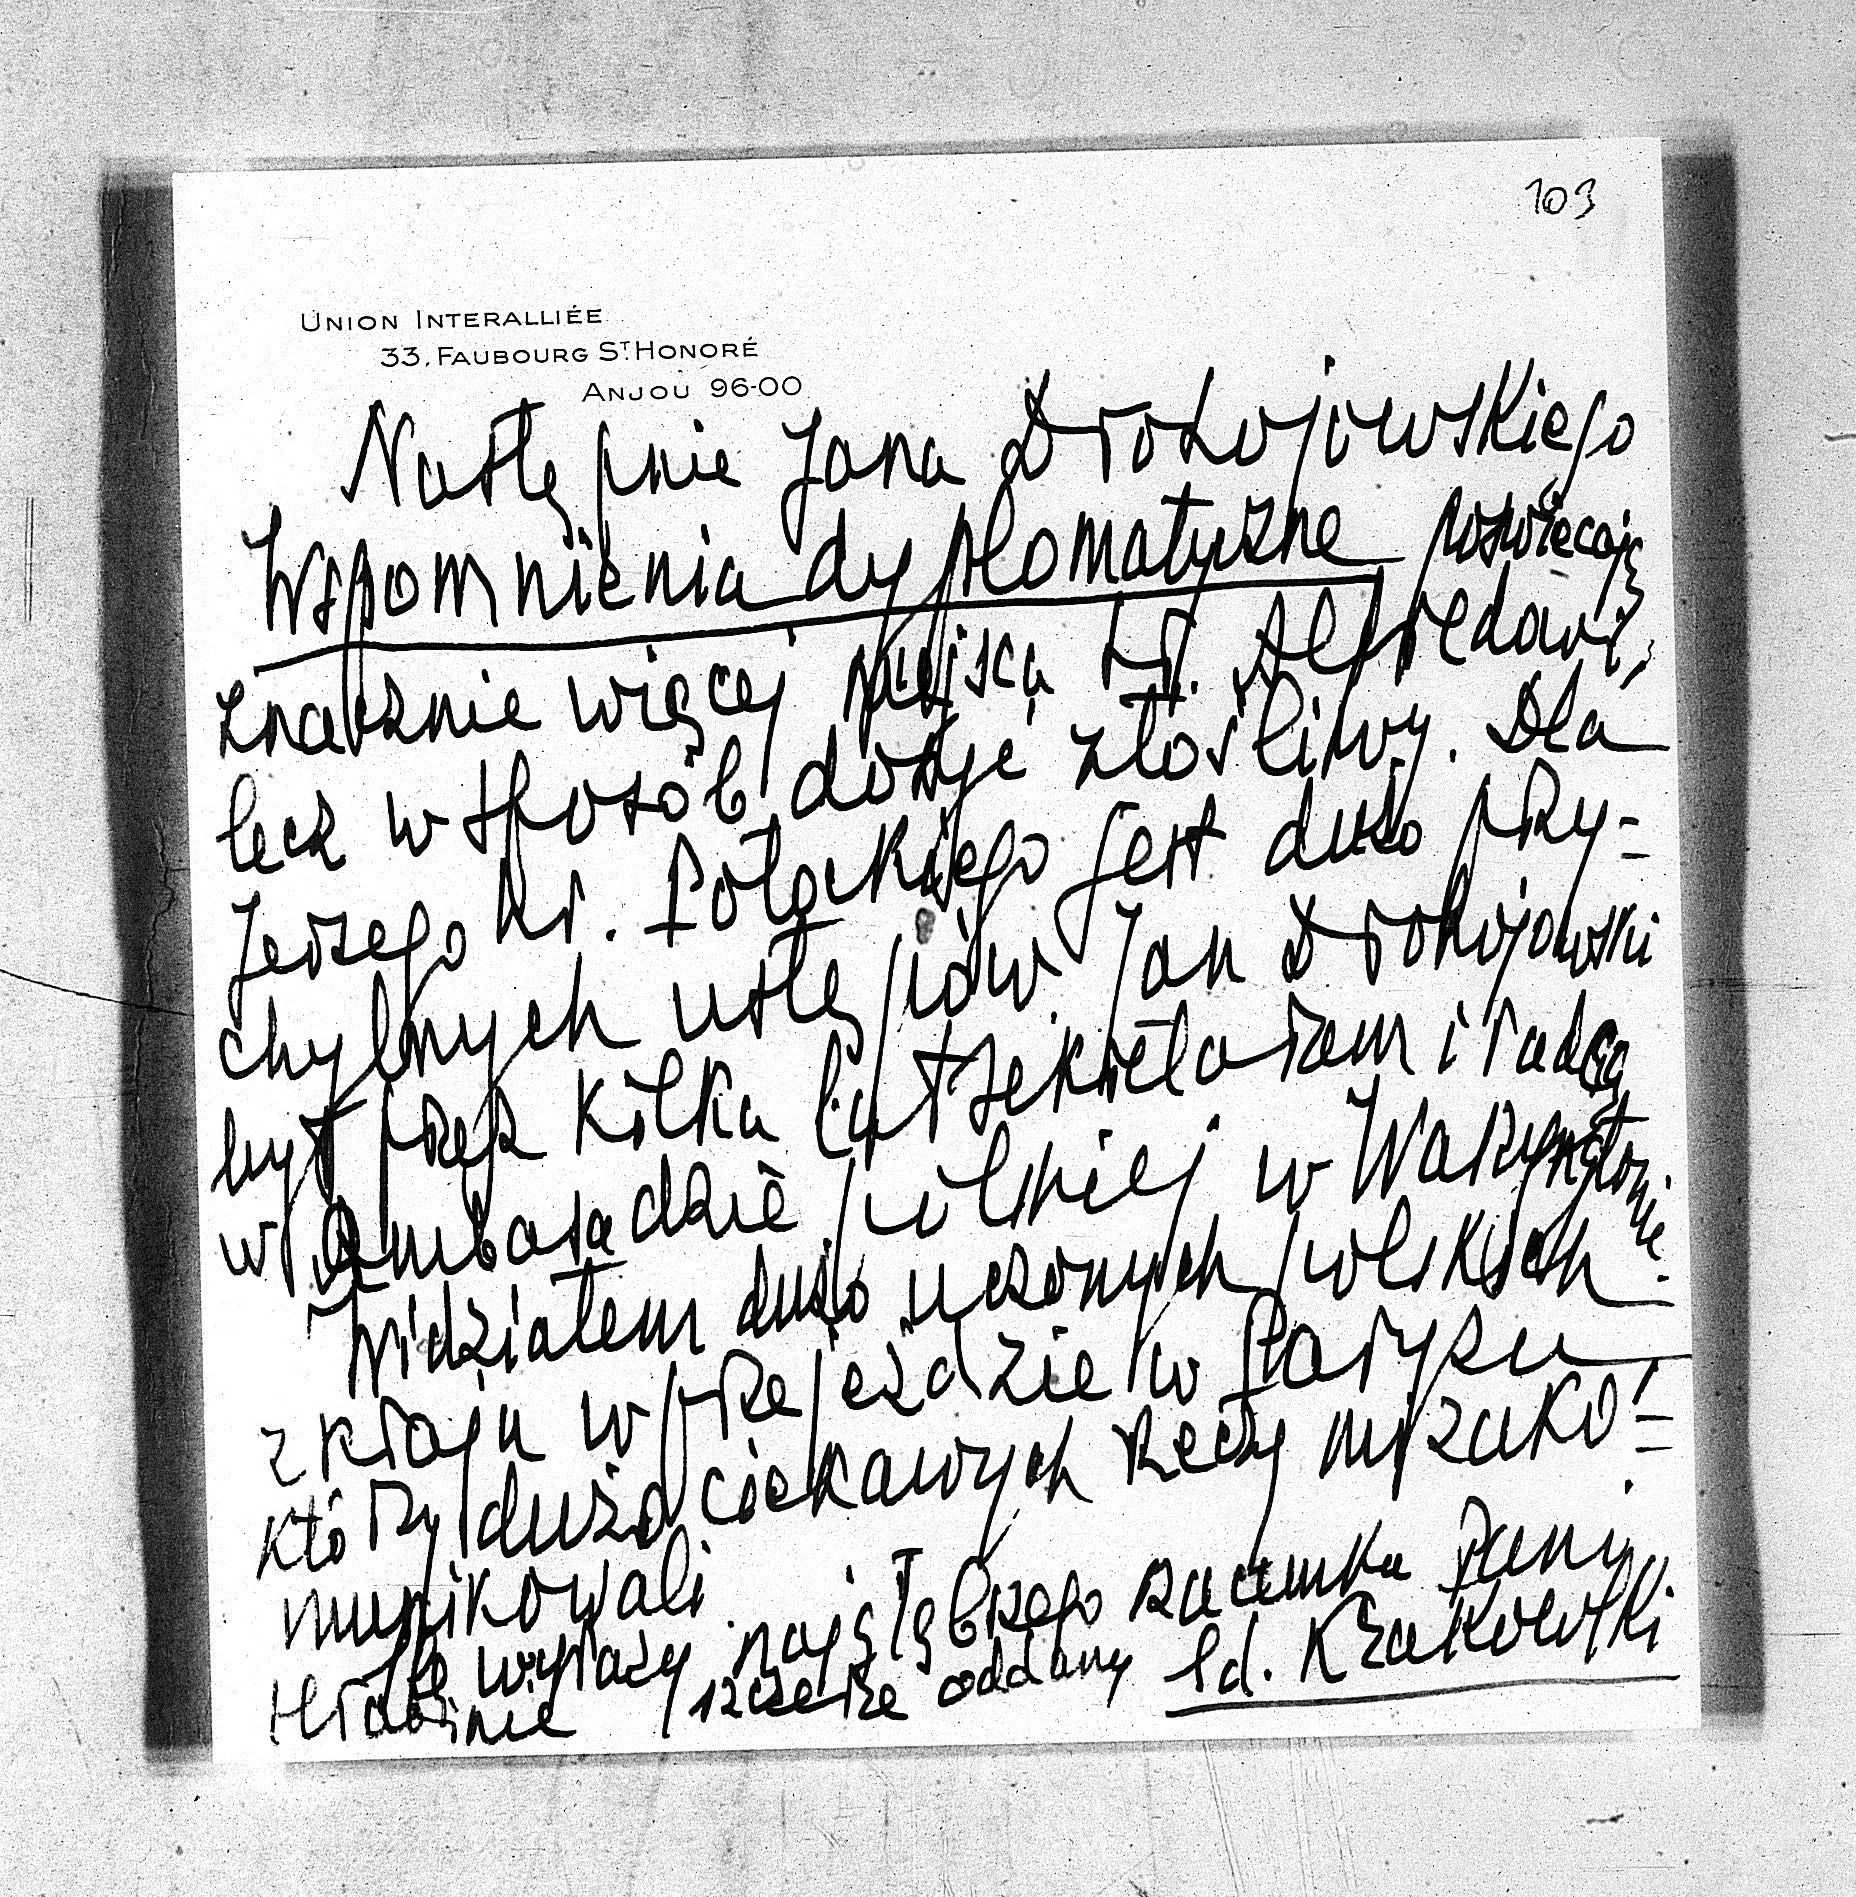 103
UNION INTERALLIÉE
33, FAUBOURG ST HONORÉ
ANJOU 96-00
Następnie Jana Drohojowskiego
Wspomnienia dyplomatyczne poświęcają
znacznie więcej miejsca hr. Alfredowi,
lecz w sposób dosyć złośliwy. Dla
Jerzego hr. Potockiego jest dużo przy=
chylnych ustępów. Jan Drohojowski
był przez kilka lat sekretarzem i radcą
w Ambasadzie polskiej w Waszyngtonie.
Widziałem dużo uczonych polskich
z kraju w przejeździe w Paryżu
którzy dużo ciekawych rzeczy mi zako=
munikowali.
Ślę wyrazy najgłębszego szacunku Pani
Hrabinie szczerze oddany Ed. Krakowski